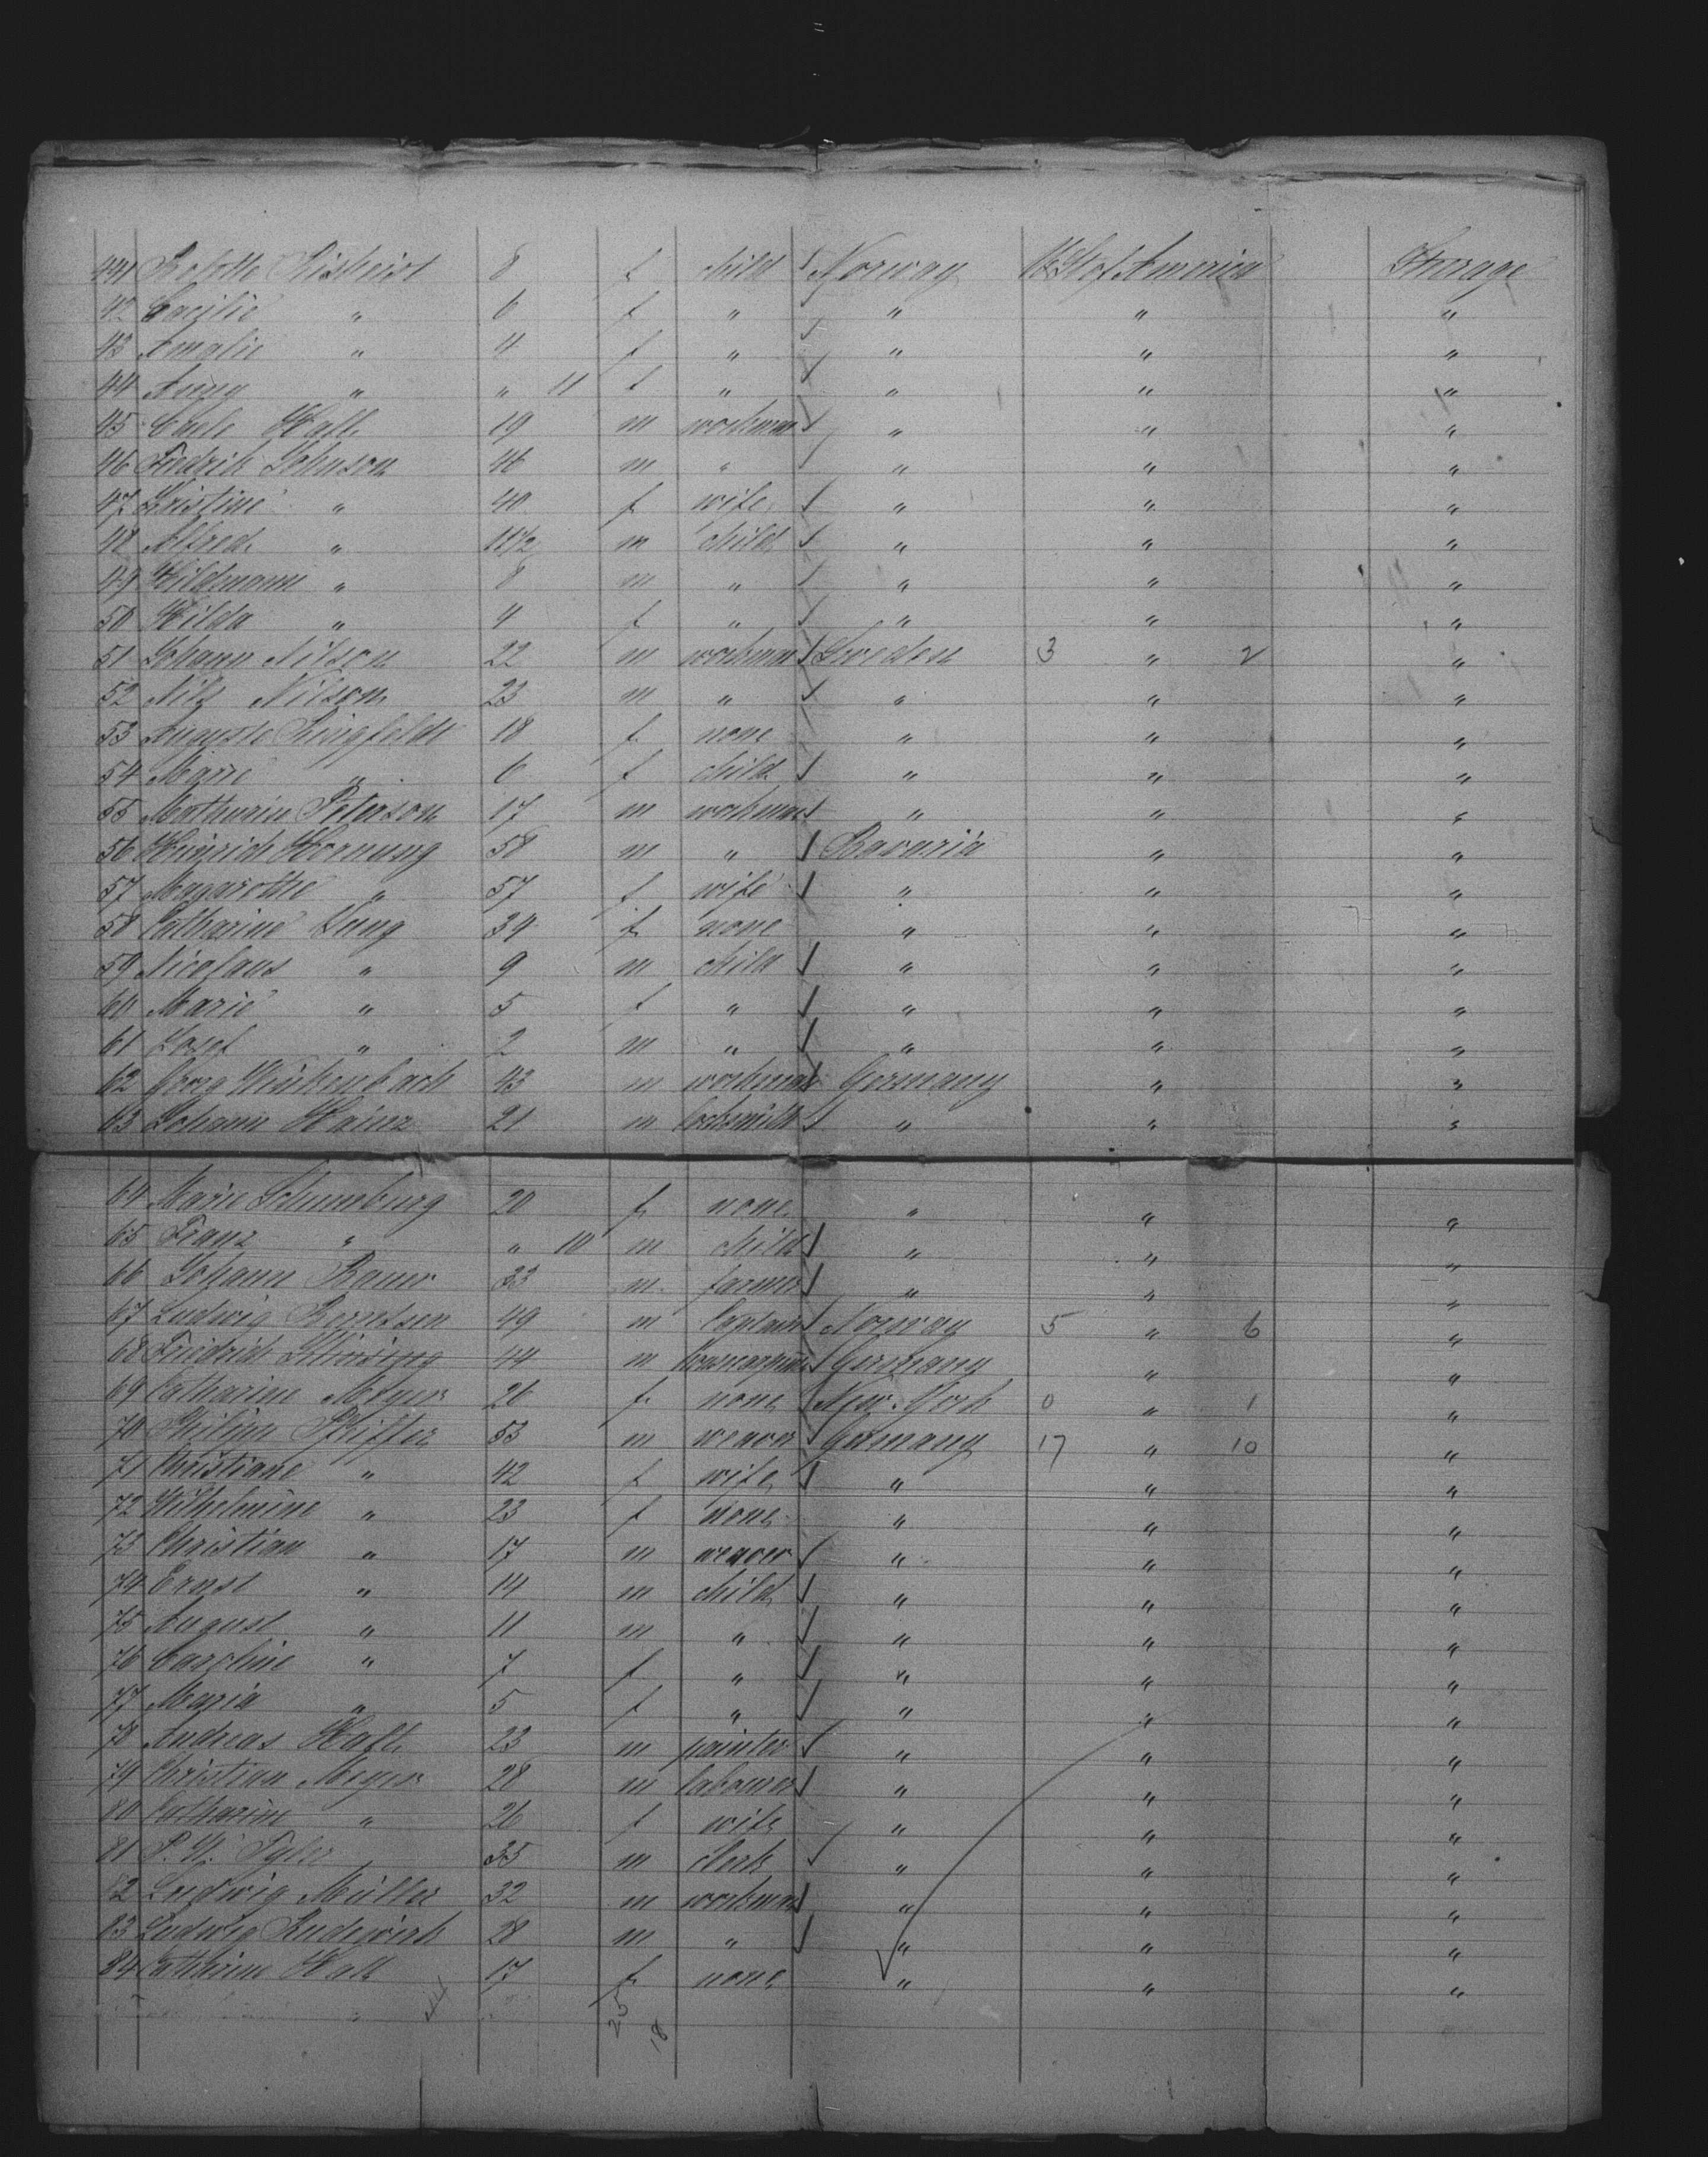 441 8 f child Norway U St of America Sterage
42 Cacilie " 6 f " " " "
43 Amalie " 4 f " " " "
44 " " 11 f " " " "
45 19 m workman " " "
46 Fredrik Johnson m " " " "
47 Kristine " 40 f wife " " "
48 Alfred " 11 1/2 m child " " "
49 " 8 m " " " "
50 Hilda " 4 f " " " "
51 Johann Nilson 22 m workman Sweden 3 " 2 "
52 Nils Nilson 23 m " " " "
53 Auguste 18 f none " " "
54 Marie " 6 f child " " "
55 Peterson 17 m workman " " "
56 Heinrich Hornung 58 m " Bavaria " "
57 Magarethe " 57 f wife " " "
58 Catharine Jung 34 f none " " "
59 Nicolaus " 9 m child " " "
60 Marie " 5 f " " " "
61 Josef " 2 m " " " "
62 Georg 43 m workman Germany " "
63 Johann Hainz 21 m locksmith " " "
64 Marie Schumburg 20 f none " " "
65 Franz " " 10 m child " " "
66 Johann Bauer 33 m farmer " " "
67 Ludwig Berntsen 49 m Captain Norway 5 " 6 "
68 Friedrich 44 m Germany " "
69 Catharine Meyer 26 f none New York 0 " 1 "
70 Pfeiffer 53 m weaver Germany 17 " 10 "
71 Christiane " 42 f wife " " "
72 Wilhelmine " 23 f none " " "
73 Christian " 17 m weaver " " "
74 Ernst " 14 m child " " "
75 August " 11 m " " " "
76 Caroline " 7 f " " " "
77 Maria " 5 f " " " "
78 Andreas 23 m painter " " "
79 Christian Meyer 28 m labourer " " "
80 Catharine " 26 f wife " " "
81 35 m clerk " " "
82 Ludwig Müller 32 m workman " " "
83 Ludwig 28 m " " " "
84 Cathrine 17 f none " " "
25
18